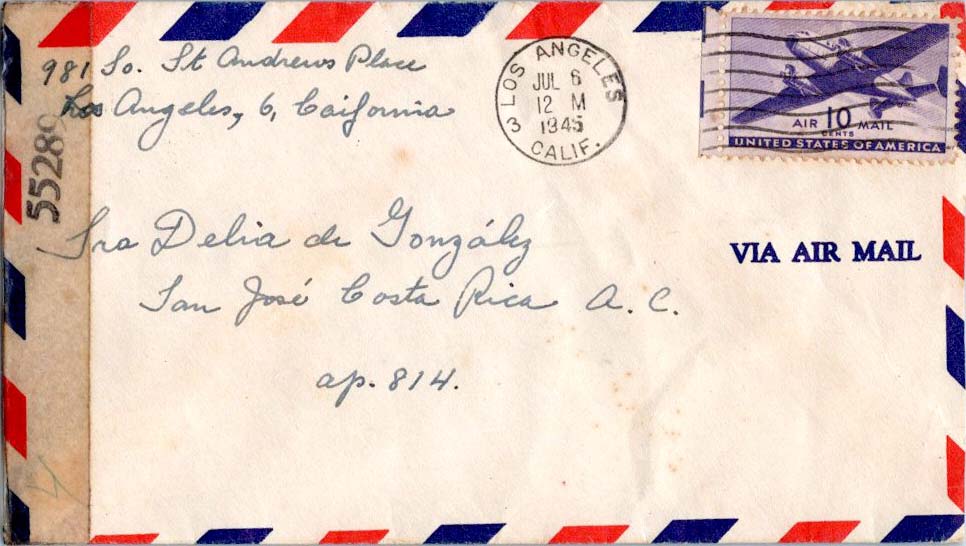 981 So. St Andrews Place
Los Angeles, 6, Caifornia
55289
3 LOS ANGELES
JUL 6
12 M
1945
CALIF.
AIR 10 MAIL
CENTS
UNITED STATES OF AMERICA
VIA AIR MAIL
Sra Delia de González
San José Costa Rica A. C.
ap. 814.
4